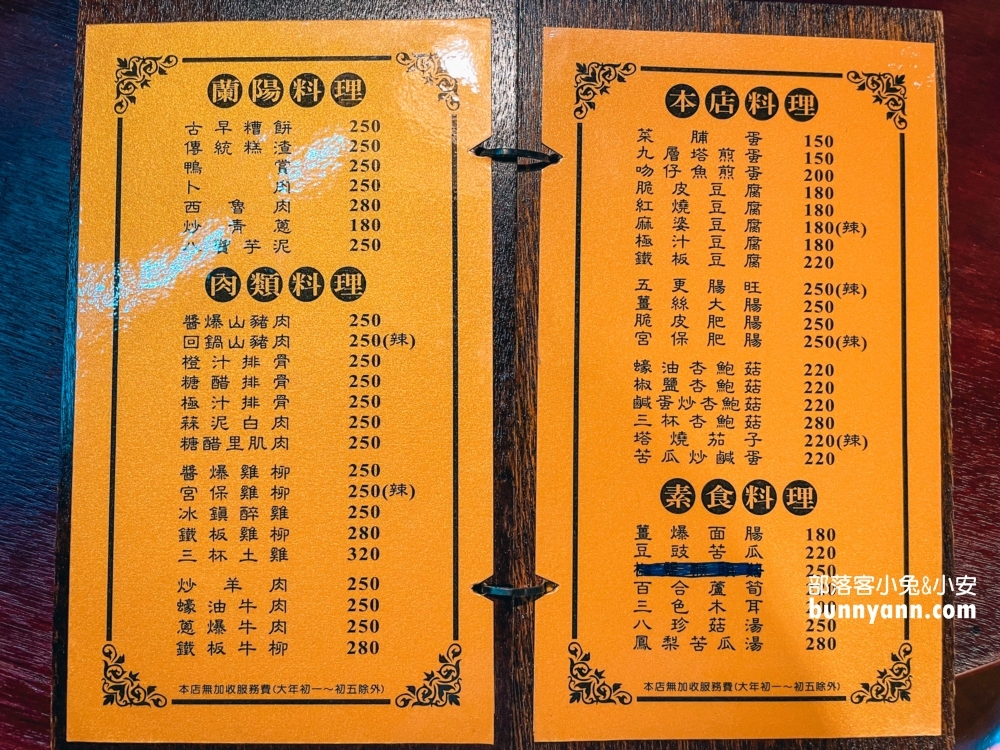 蘭陽料理
古早糟餅 250
傳統糕渣 250
鴨賞 250
卜肉 250
西魯肉 280
炒青蔥 180
八寶芋泥 250
肉類料理
醬爆山豬肉 250
回鍋山豬肉 250(辣)
橙汁排骨 250
糖醋排骨 250
極汁排骨 250
蒜泥白肉 250
糖醋里肌肉 250
醬爆雞柳 250
宮保雞柳 250(辣)
冰鎮醉雞 250
鐵板雞柳 280
三杯土雞 320
炒羊肉 250
蠔油牛肉 250
蔥爆牛肉 250
鐵板牛柳 280
本店無加收服務費(大年初一～初五除外)
本店料理
菜脯蛋 150
九層塔煎蛋 150
吻仔魚煎蛋 200
脆皮豆腐 180
紅燒豆腐 180
麻婆豆腐 180(辣)
極汁豆腐 180
鐵板豆腐 220
五更腸旺 250(辣)
薑絲大腸 250
脆皮肥腸 250
宮保肥腸 250(辣)
蠔油杏鮑菇 220
椒鹽杏鮑菇 220
鹹蛋炒杏鮑菇 220
三杯杏鮑菇 280
塔燒茄子 220(辣)
苦瓜炒鹹蛋 220
素食料理
薑爆面腸 180
豆豉苦瓜 220
250
百合蘆筍
三色木耳
八珍菇湯 250
鳳梨苦瓜湯 280
本店無加收服務費(大年初一～初五除外)
部落客小兔&小安
bunnyann.com